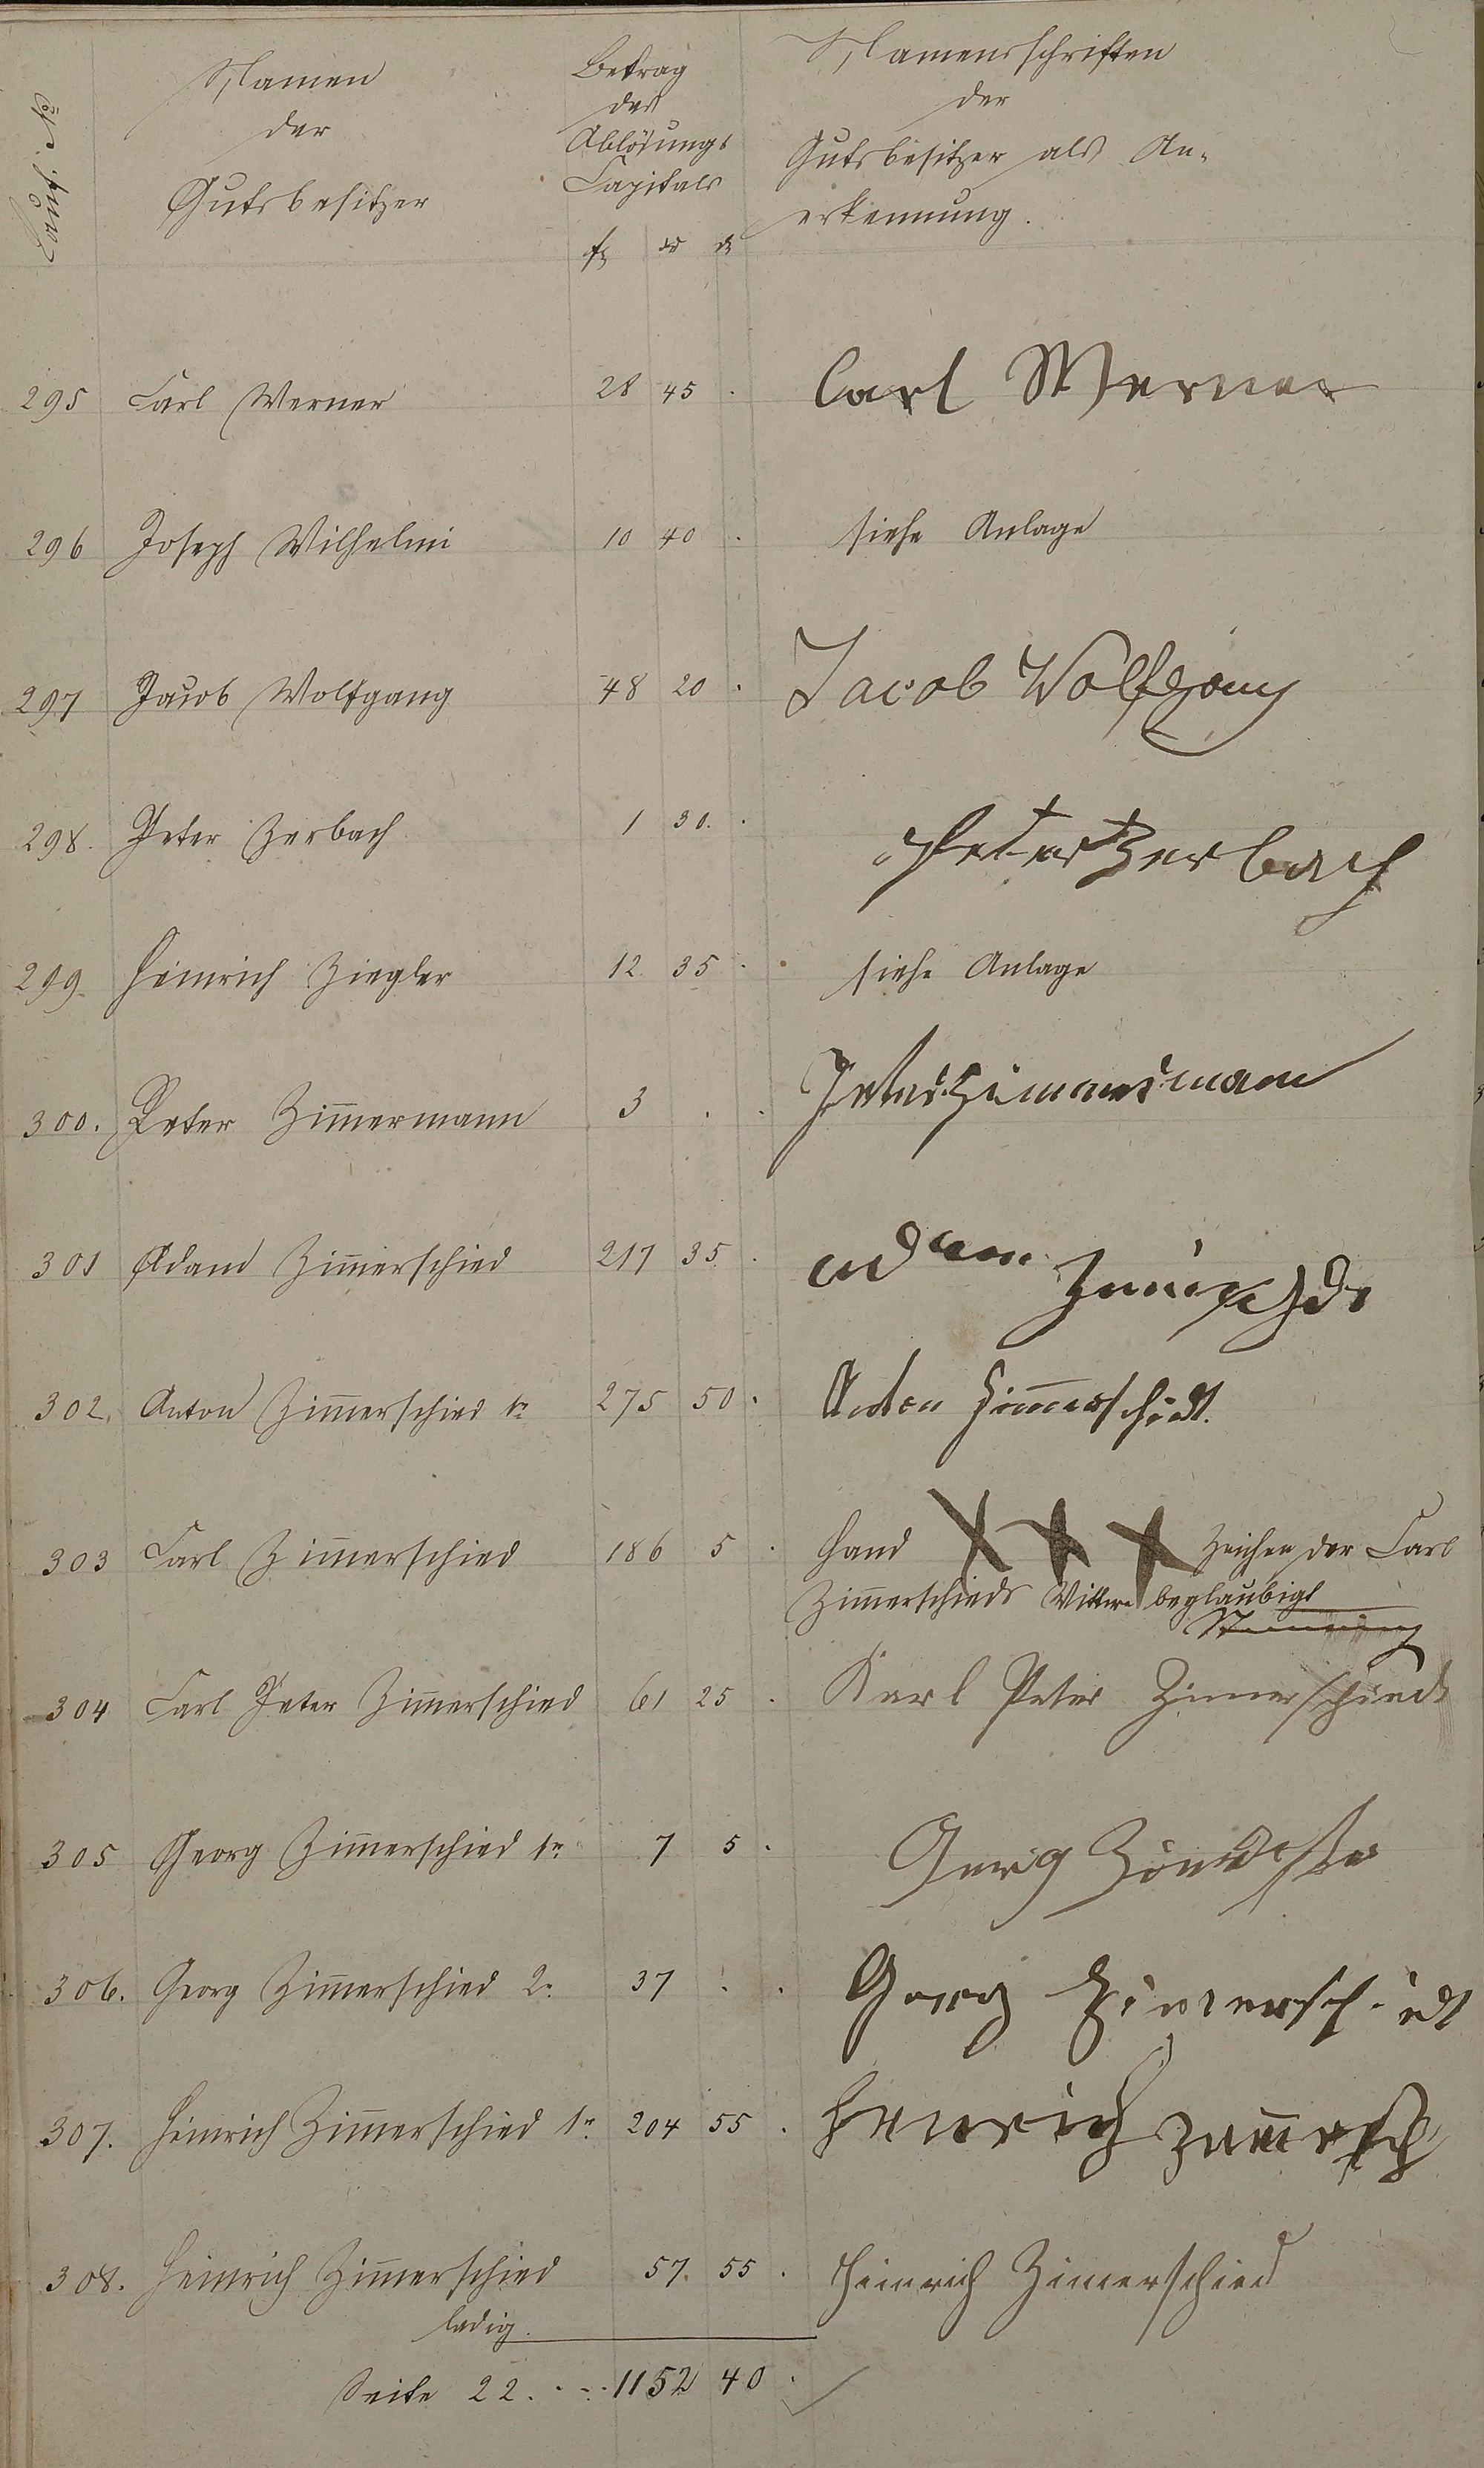 Lauf. No.
Namen
der
Gutsbesitzer
Betrag
des
Ablösungs
Capitals
fl xr d
Namensschriften
der
Gutsbesitzer als An-
erkennung.
295 Carl Werner 28 45 . Carl Werner
296 Joseph Wilhelmi 10 40 . siehe Anlage
297 Jacob Wolfgang 48 20 . Jacob Wolfgang
298. Peter Zerbach 1 30. . Peter Zerbach
299. Heinrich Ziegler 12 35 . siehe Anlage
300. Peter Zim̄ermann 3 . . Peter Zimmermann
301 Adam Zim̄erschied 217 35 . adam
302. Anton Zim̄erschied 1r 275 50 . Anton Zim̄erschidt.
303 Carl Zim̄erschied 186 5 . Hand XXX Zeichen der Carl
Zim̄erschieds Wittwe beglaubigt
304 Carl Peter Zim̄erschied 61 25 . Karl Peter Zimerschiedt
305 Georg Zim̄erschied 1r 7 5 . Georg
306. Georg Zim̄erschied 2r 37 . . Georg Zimerschidt
307. Heinrich Zim̄erschied 1r 204 55 . Henrich Zim̄ersch
308. Heinrich Zim̄erschied 57. 55 . Heinrich Zimerschied
ledig.
Seite 22. . - . 1152 40 .